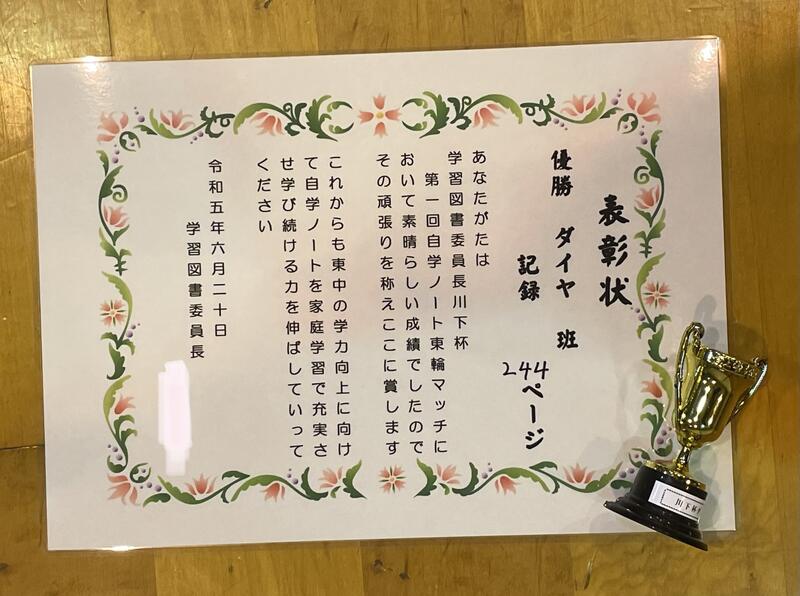 表彰状
優勝 ダイヤ 班
記録 244ページ
あなたがたは
学習図書委員長川下杯
第一回自学ノート東輪マッチに
おいて素晴らしい成績でしたので
その頑張りを称えここに賞します
これからも東中の学力向上に向け
て自学ノートを家庭学習で充実さ
せ学び続ける力を伸ばしていって
ください
令和五年六月二十日
学習図書委員長
川下杯